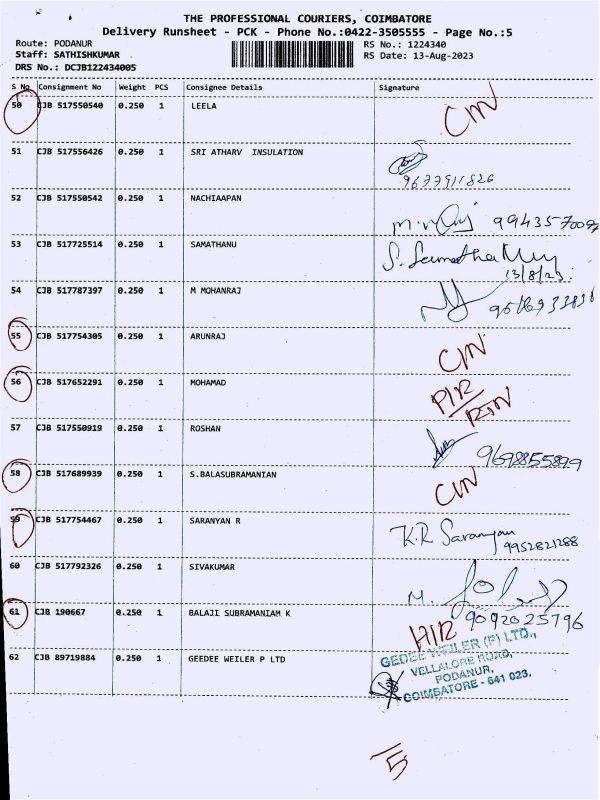 THE PROFESSIONAL COURIERS, COIMBATORE
Delivery Runsheet - PCK - Phone No.:0422-3505555 - Page No.:5
Route: PODANUR
RS No.: 1224340
Staff: SATHISHKUMAR
RS Date: 13-Aug-2023
DRS No.: DCJB122434005
S No Consignment No Weight PCS Consignee Details Signature
50 CJB 517550540 0.250 1 LEELA
51 CJB 517556426 0.250 1 SRI ATHARV INSULATION
9677911826
52 CJB 517550542 0.250 1 NACHIAAPAN
53 CJB 517725514 0.250 1 SAMATHANU
13/8/23
54 CJB 517787397 0.250 1 M MOHANRAJ
55 CJB 517754305 0.250 1 ARUNRAJ
56 CJB 517652291 0.250 1 MOHAMAD
57 CJB 517550919 0.250 1 ROSHAN
9698855899
58 CJB 517689939 0.250 1 S.BALASUBRAMANIAN
59 CJB 517754467 0.250 1 SARANYAN R
K.R Saranyan
9952821288
60 CJB 517792326 0.250 1 SIVAKUMAR
9092025796
61 CJB 190667 0.250 1 BALAJI SUBRAMANIAM K
62 CJB 89719884 0.250 1 GEEDEE WEILER P LTD
GEDEE WEILER (P) LTD.,
VELLALORE ROAD,
PODANUR,
COIMBATORE - 641 023.
5